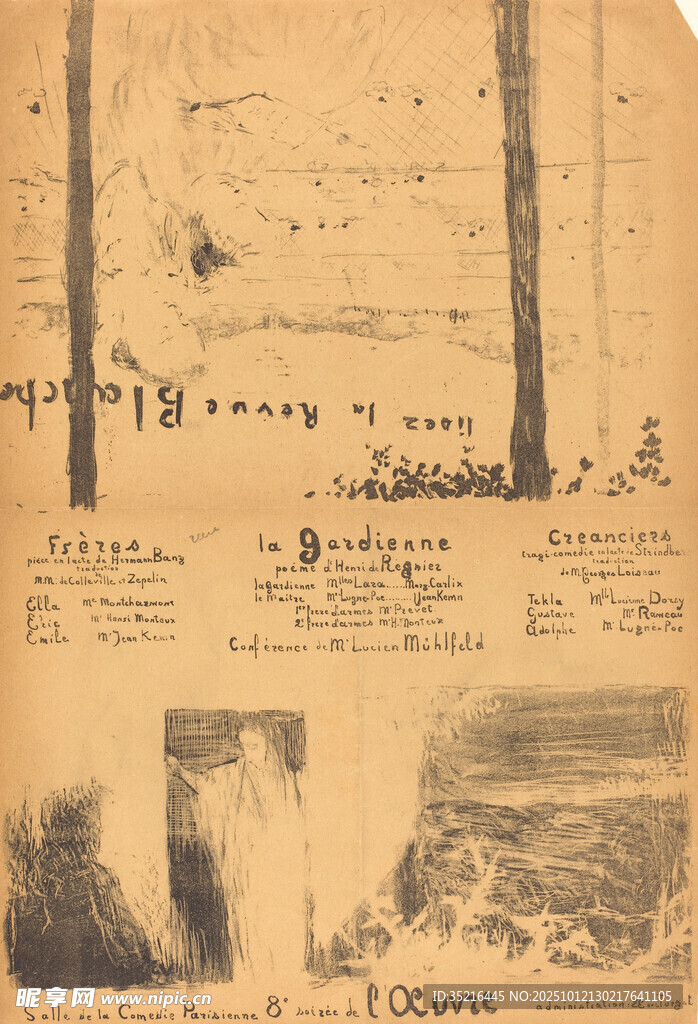 lisez la Revue Blanche
Frères
pièce en 1 acte de Hermann Bang
traduction
de
M.M. de Colleville et Zepelin
Ella Me Montcharmont
Eric Mr Henri Monteux
Emile Mr Jean Kemn
la gardienne
poème d'Henri de Regnier
la gardienne Mlles Lara......Marg. Carlix
le Maitre Mr Lugné-Poe......Jean Kemn
1er frere d'armes Mr Prevet
2e frere d'armes Mr H. Monteux
Conférence de Mr Lucien Mühlfeld
Creanciers
tragi-comedie en 1 acte de Strindberg
traduction
de Mr Georges Loiseau
Tekla Mlle Lucienne Dorcy
Gustave Mr Rameau
Adolphe Mr Lugné-Poe
Salle de la Comedie Parisienne 8e soirée de l'Œuvre
administration
昵享网 www.nipic.cn
ID:35216445 NO:20251012130217641105